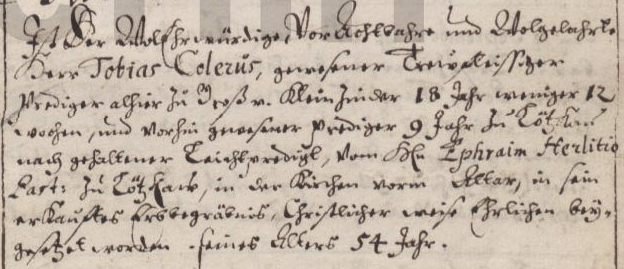 Ist Der WolEhrwürdige, VorAchtbahre und Wolgelahrte
Herr Tobias Colerus, gewesener Trewfleissiger
Prediger alhier zu Groß v. Klein 18 Jahr weniger 12
wochen, und vorhin gewesener Prediger 9 Jahr zu
nach gehaltener Leichpredigt, vom Hn Ephraim Herlitio
Past: zu, in der Kirchen vorm Altar, in sein
erkaufftes Erbbegräbnis, Christlicher weise Ehrlichen bey-
gesetzet worden. seines Alters 54 Jahr.